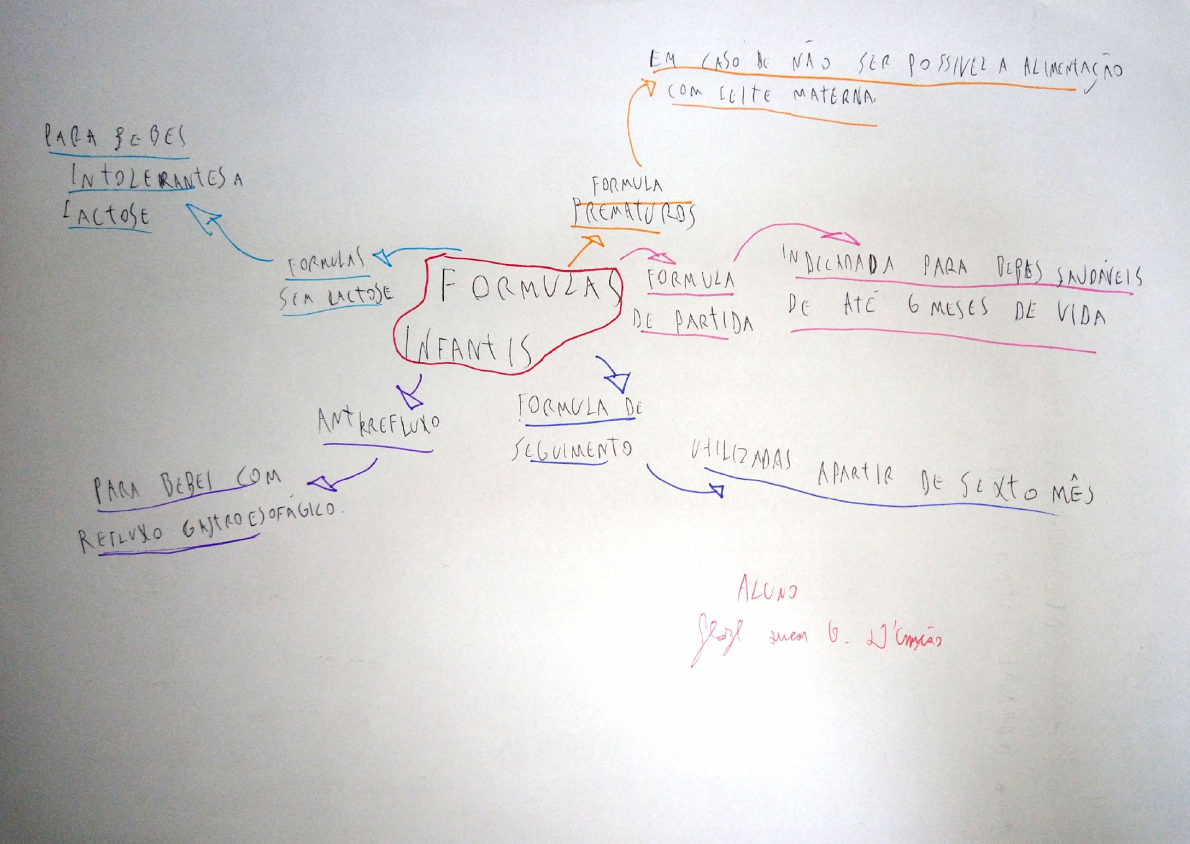 EM CASO DE NÃO SER POSSIVEL A ALIMENTAÇÃO
COM LEITE MATERNA.
PARA BEBES
INTOLERANTES A
LACTOSE
FORMULA
PREMATUROS
FORMULAS
SEM LACTOSE
FORMULAS
INFANTIS
FORMULA
DE PARTIDA
PARA BEBES SAUDÁVEIS
DE ATÉ 6 MESES DE VIDA
ANTIRREFLUXO
PARA BEBEI COM
REFLUXO GASTROESOFÁGICO.
FORMULA DE
SEGUIMENTO
UTILIZADAS APARTIR DE SEXTO MÊS
ALUNO